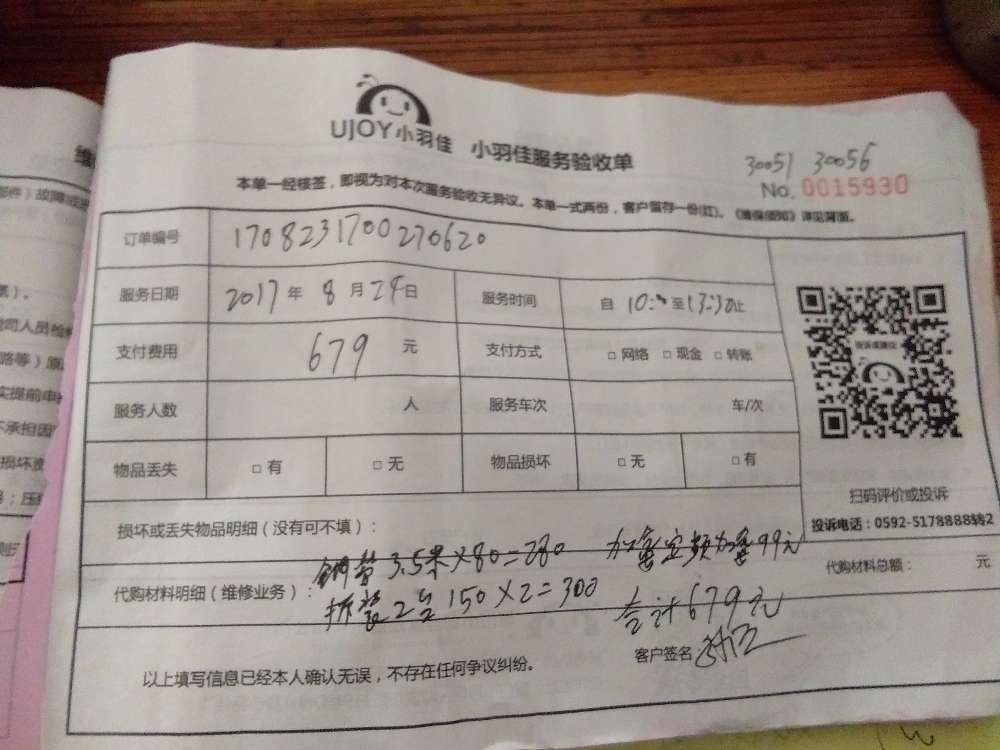 UJOY小羽佳 小羽佳服务验收单
30051 30056
No. 0015930
本单一经核签，即视为对本次服务验收无异议。本单一式两份，客户留存一份(红)。《维保须知》详见背面。
订单编号 1708231700270620
服务日期 2017年8月24日 服务时间 自10: 至13:30止
支付费用 679元 支付方式 □网络 □现金 □转账
服务人数 人 服务车次 车/次
物品丢失 □有 □无 物品损坏 □无 □有
投诉或建议
扫码评价或投诉
投诉电话：0592-5178888转2
损坏或丢失物品明细（没有可不填）：
铜管3.5米×80=280 加 定频加 99元
代购材料明细（维修业务）： 拆装2台150×2=300 合计679元
代购材料总额： 元
以上填写信息已经本人确认无误，不存在任何争议纠纷。 客户签名: